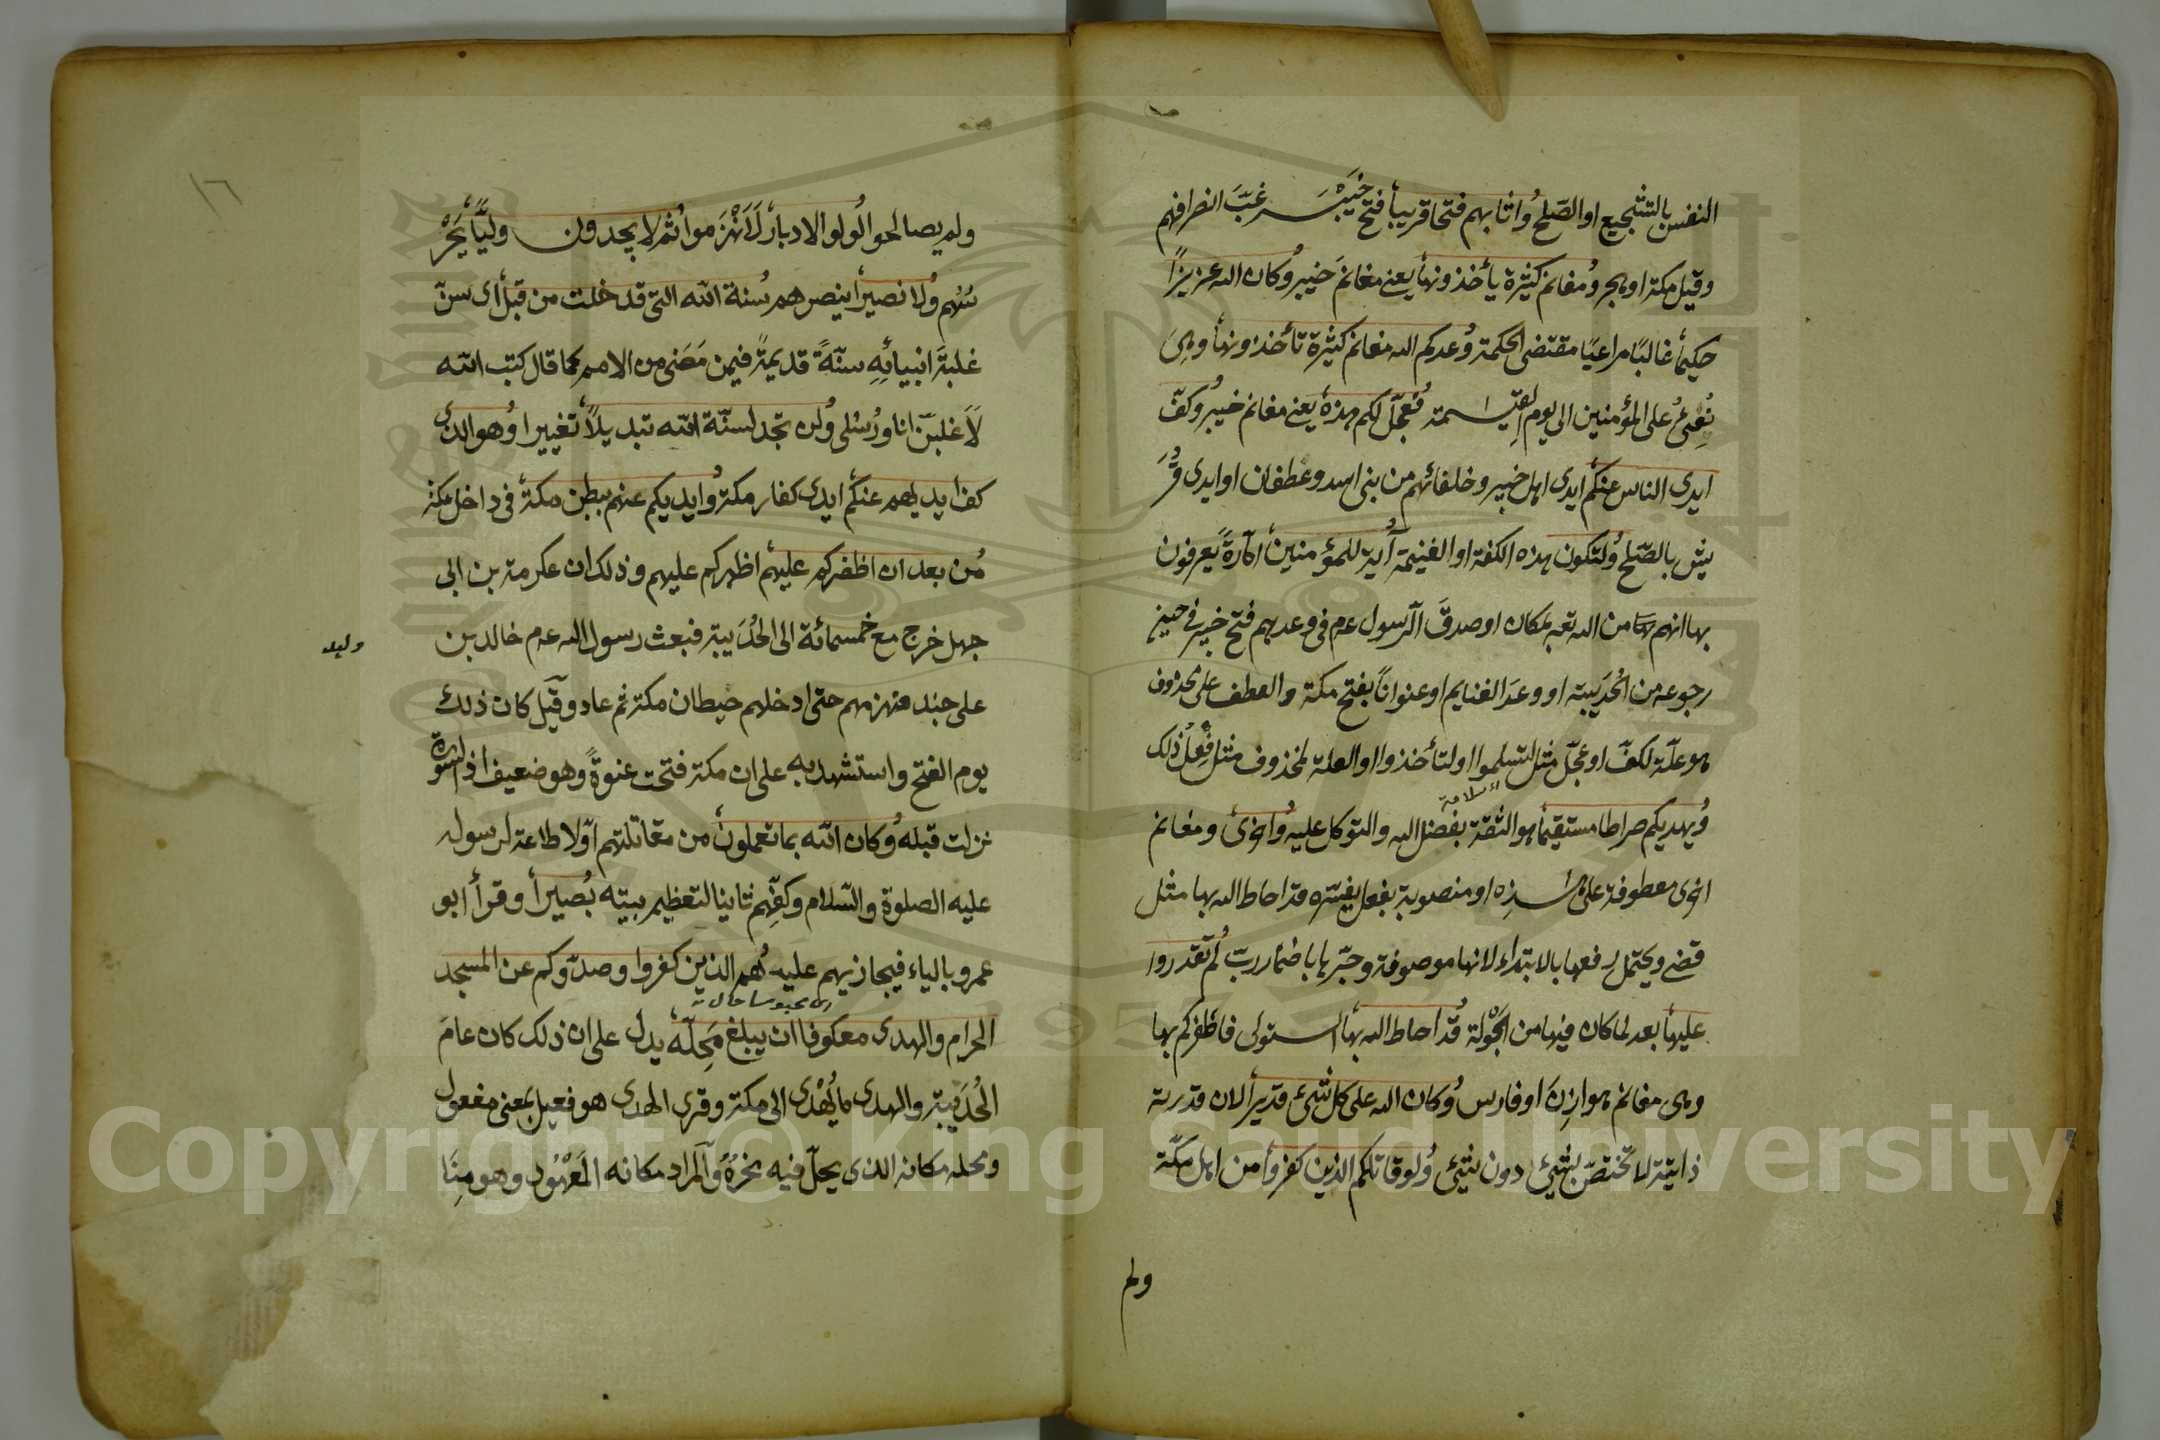 النفس بالتشجيع او الصلح واثابهم فتحا قريبا فتح خيبر غب انصرافهم
وقيل مكة او هجر ومغانم كثيرة يأخذونها يعني مغانم خيبر وكان الله عزيزا
حكيما غالبا مراعيا مقتضى الحكمة وعدكم الله مغانم كثيرة تأخذونها وهي
نفئ على المؤمنين الى يوم القيمة فعجل لكم هذه يعني مغانم خيبر وكف
ايدي الناس عنكم ايدي اهل خيبر وخلفائهم من بني اسد وغطفان او ايدي قر
يش بالصلح ولتكون هذه الكفة او الغنيمة آية للمؤمنين امارة يعرفون
بها انهم من الله تعه بمكان او صدق الرسول عم في وعدهم فتح خيبر في حين
رجوعه من الحديبية او وعد الغنايم او عنوانا بفتح مكة والعطف على محذوف
هو علة لكف او عجل مثل لتسلموا او لتأخذوا او العلة لمحذوف مثل فعل ذلك
ويهديكم صراطا مستقيما هو الثقة بفضل الله والتوكل عليه واخرى ومغانم
اخرى معطوفة على هذه او منصوبة بفعل يفسره قد احاط الله بها مثل
قضى ويحتمل رفعها بالابتداء لانها موصوفة وجرها باضمار رب لم تقدروا
عليها بعد لما كان فيها من الجولة قد احاط الله بها استولى فاظفركم بها
وهي مغانم هوازن او فارس وكان الله على كل شئ قديرا لان قدرته
ذاتية لا تختص بشئ دون شئ ولو قاتلكم الذين كفروا من اهل مكة
ولم
ولم يصالحوا لولوا الادبار لانهزموا ثم لا يجدون وليا يحر
سهم ولا نصيرا ينصرهم سنة الله التي قد خلت من قبل اى سن
غلبة انبيائه سنة قديمة فيمن مضى من الامم كما قال كتب الله
لاغلبن انا ورسلى ولن تجد لسنة الله تبديلا تغييرا وهو الذى
كف ايديهم عنكم ايدى كفار مكة وايديكم عنهم ببطن مكة في داخل مكة
من بعد ان اظفركم عليهم اظهركم عليهم وذلك ان عكرمة بن ابى
جهل خرج مع خمسمائة الى الحديبية فبعث رسول الله عم خالد بن
وليد
على جند فهزمهم حتى ادخلهم حيطان مكة ثم عاد وقيل كان ذلك
يوم الفتح واستشهد به على ان مكة فتحت عنوة وهو ضعيف اذ السورة
نزلت قبله وكان الله بما تعملون من مقاتلتهم اولا طاعة لرسوله
عليه الصلوة والسلام وكفهم ثانيا لتعظيم بيته بصيرا وقرأ ابو
عمرو بالياء فيجازيهم عليه هم الذين كفروا وصدوكم عن المسجد
الحرام والهدى معكوفا ان يبلغ محله يدل على ان ذلك كان عام
الحديبية والهدى ما يهدى الى مكة وقرى الهدى هو فعيل بمعنى مفعول
ومحله مكانه الذى يحل فيه نحره والمراد مكانه المعهود وهو منا
١٦
Copyright © King Saud University